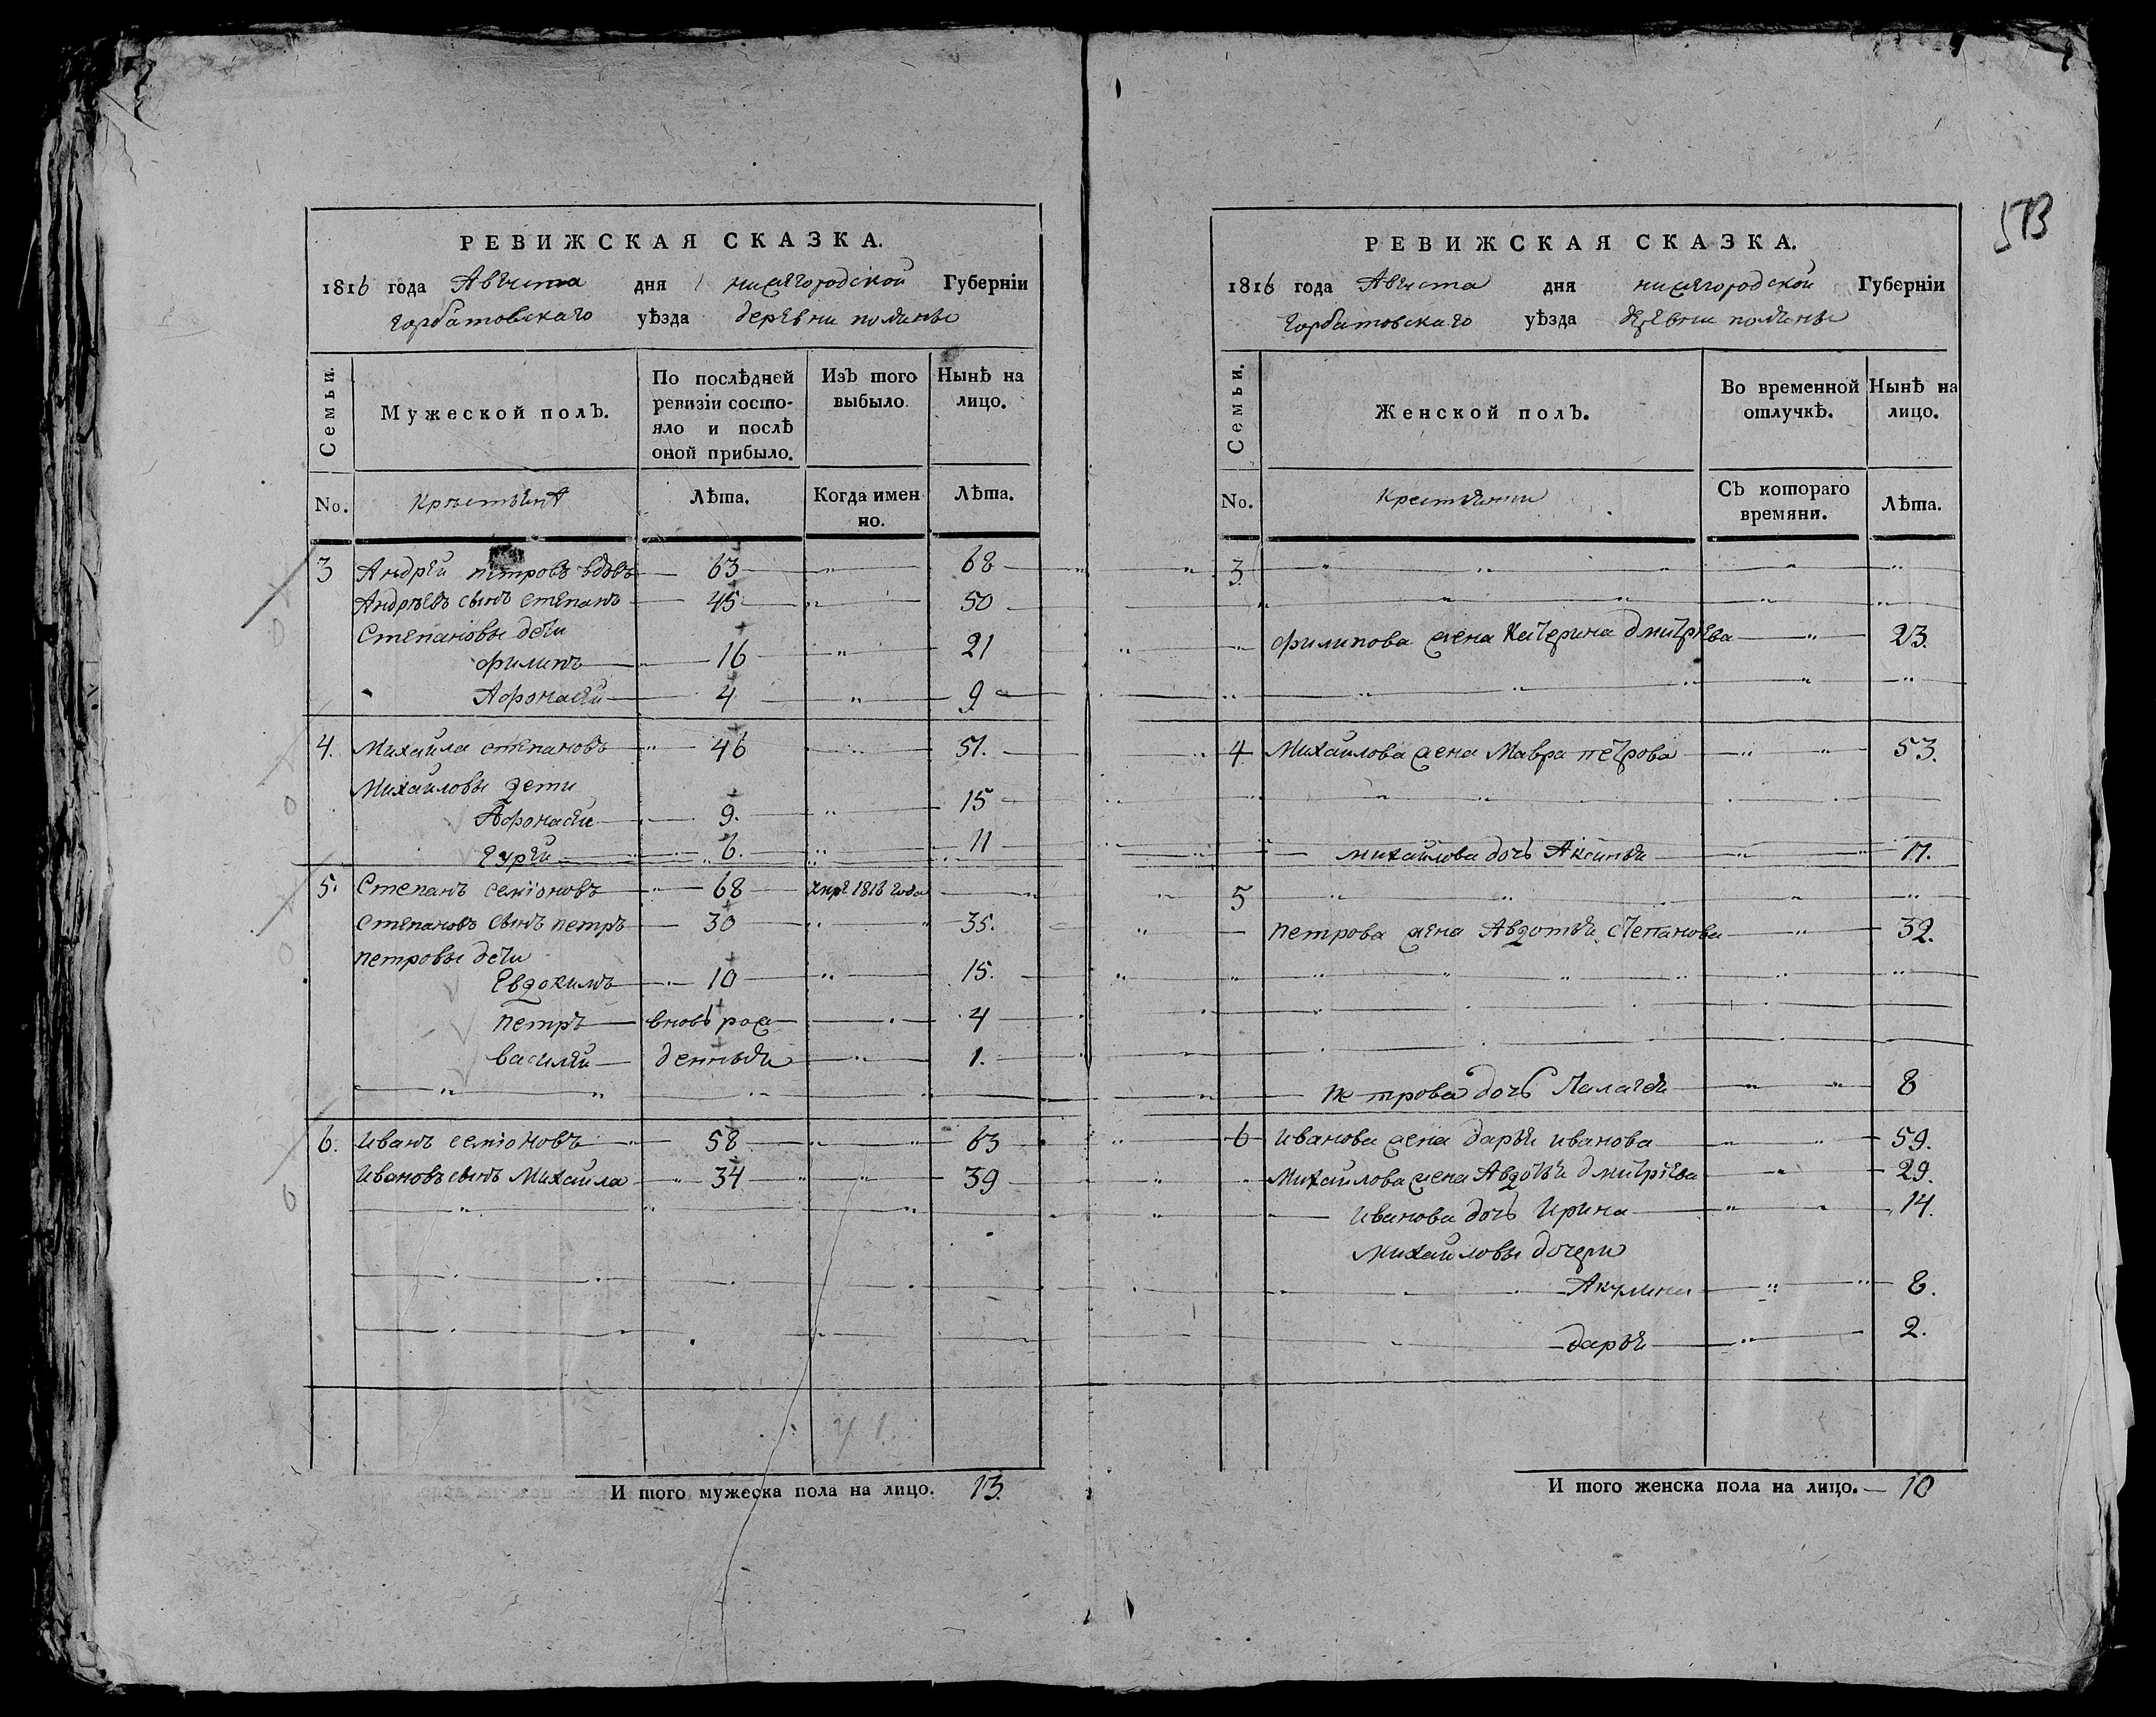 РЕВИЖСКАЯ СКАЗКА.
1816 года Августа дня нижегородской Губерніи
горбатовскаго уѣзда деревни
Семьи.
Мужеской полъ.
По послѣдней ревизіи состо-яло и послѣ оной прибыло.
Изъ того выбыло.
Нынѣ на лицо.
No.
Лѣта.
Когда имен но.
Лѣта.
3 Андрей петровъ вдовъ 63 68
Андреевъ сынъ степанъ 45 50
Степановы дети
филипъ 16 21
Афонасей 4 9
4. Михаила степановъ 46 51.
Михаиловы дети
Афонасей 9. 15
гурей 6. 11
5. Степанъ семіоновъ 68 1816 года
степановъ сынъ петръ 30 35.
петровы дети
Евдокимъ 10 15.
петръ вновь рож 4
василей денныя 1.
6. иванъ семіоновъ 58 63
ивановъ сынъ Михаила 34 39
И того мужеска пола на лицо. 13.
513
РЕВИЖСКАЯ СКАЗКА.
1816 года Августа дня нижегородской Губерніи
горбатовскаго уѣзда деревни
Семьи.
Женской полъ.
Во временной отлучкѣ.
Нынѣ на лицо.
No.
Съ котораго времяни.
Лѣта.
3.
филипова жена Катерина дмитрева 23.
4 Михаилова жена Мавра петрова 53.
михаилова дочь Аксинья 17.
5
петрова жена Авдотья степанова 32.
петрова дочь Палагея 8
6 иванова жена дарья иванова 59.
Михаилова жена Авдотья дмитриева 29.
иванова дочь Ирина 14.
михаиловы дочери
Акулина 8.
дарья 2.
И того женска пола на лицо. 10